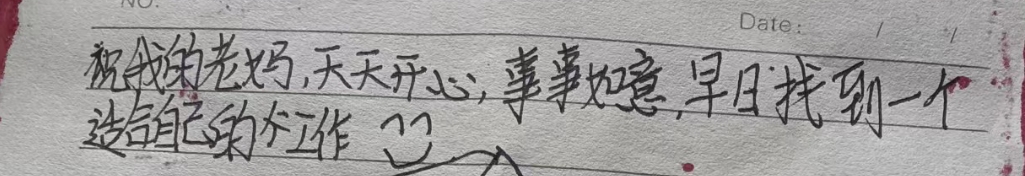 NO.
Date: / /
祝我的老妈,天天开心,事事如意,早日找到一个
适合自己的工作